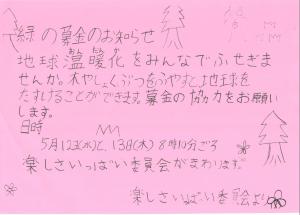 緑の募金のお知らせ
地球温暖化をみんなでふせぎま
せんか。木やしょくぶつをふやすと地球を
たすけることができます。募金の協力をお願い
します。
日時
5月12日(水)と、13日(木) 8時10分ごろ
楽しさいっぱい委員会がまわります。
楽しさいっぱい委員会より